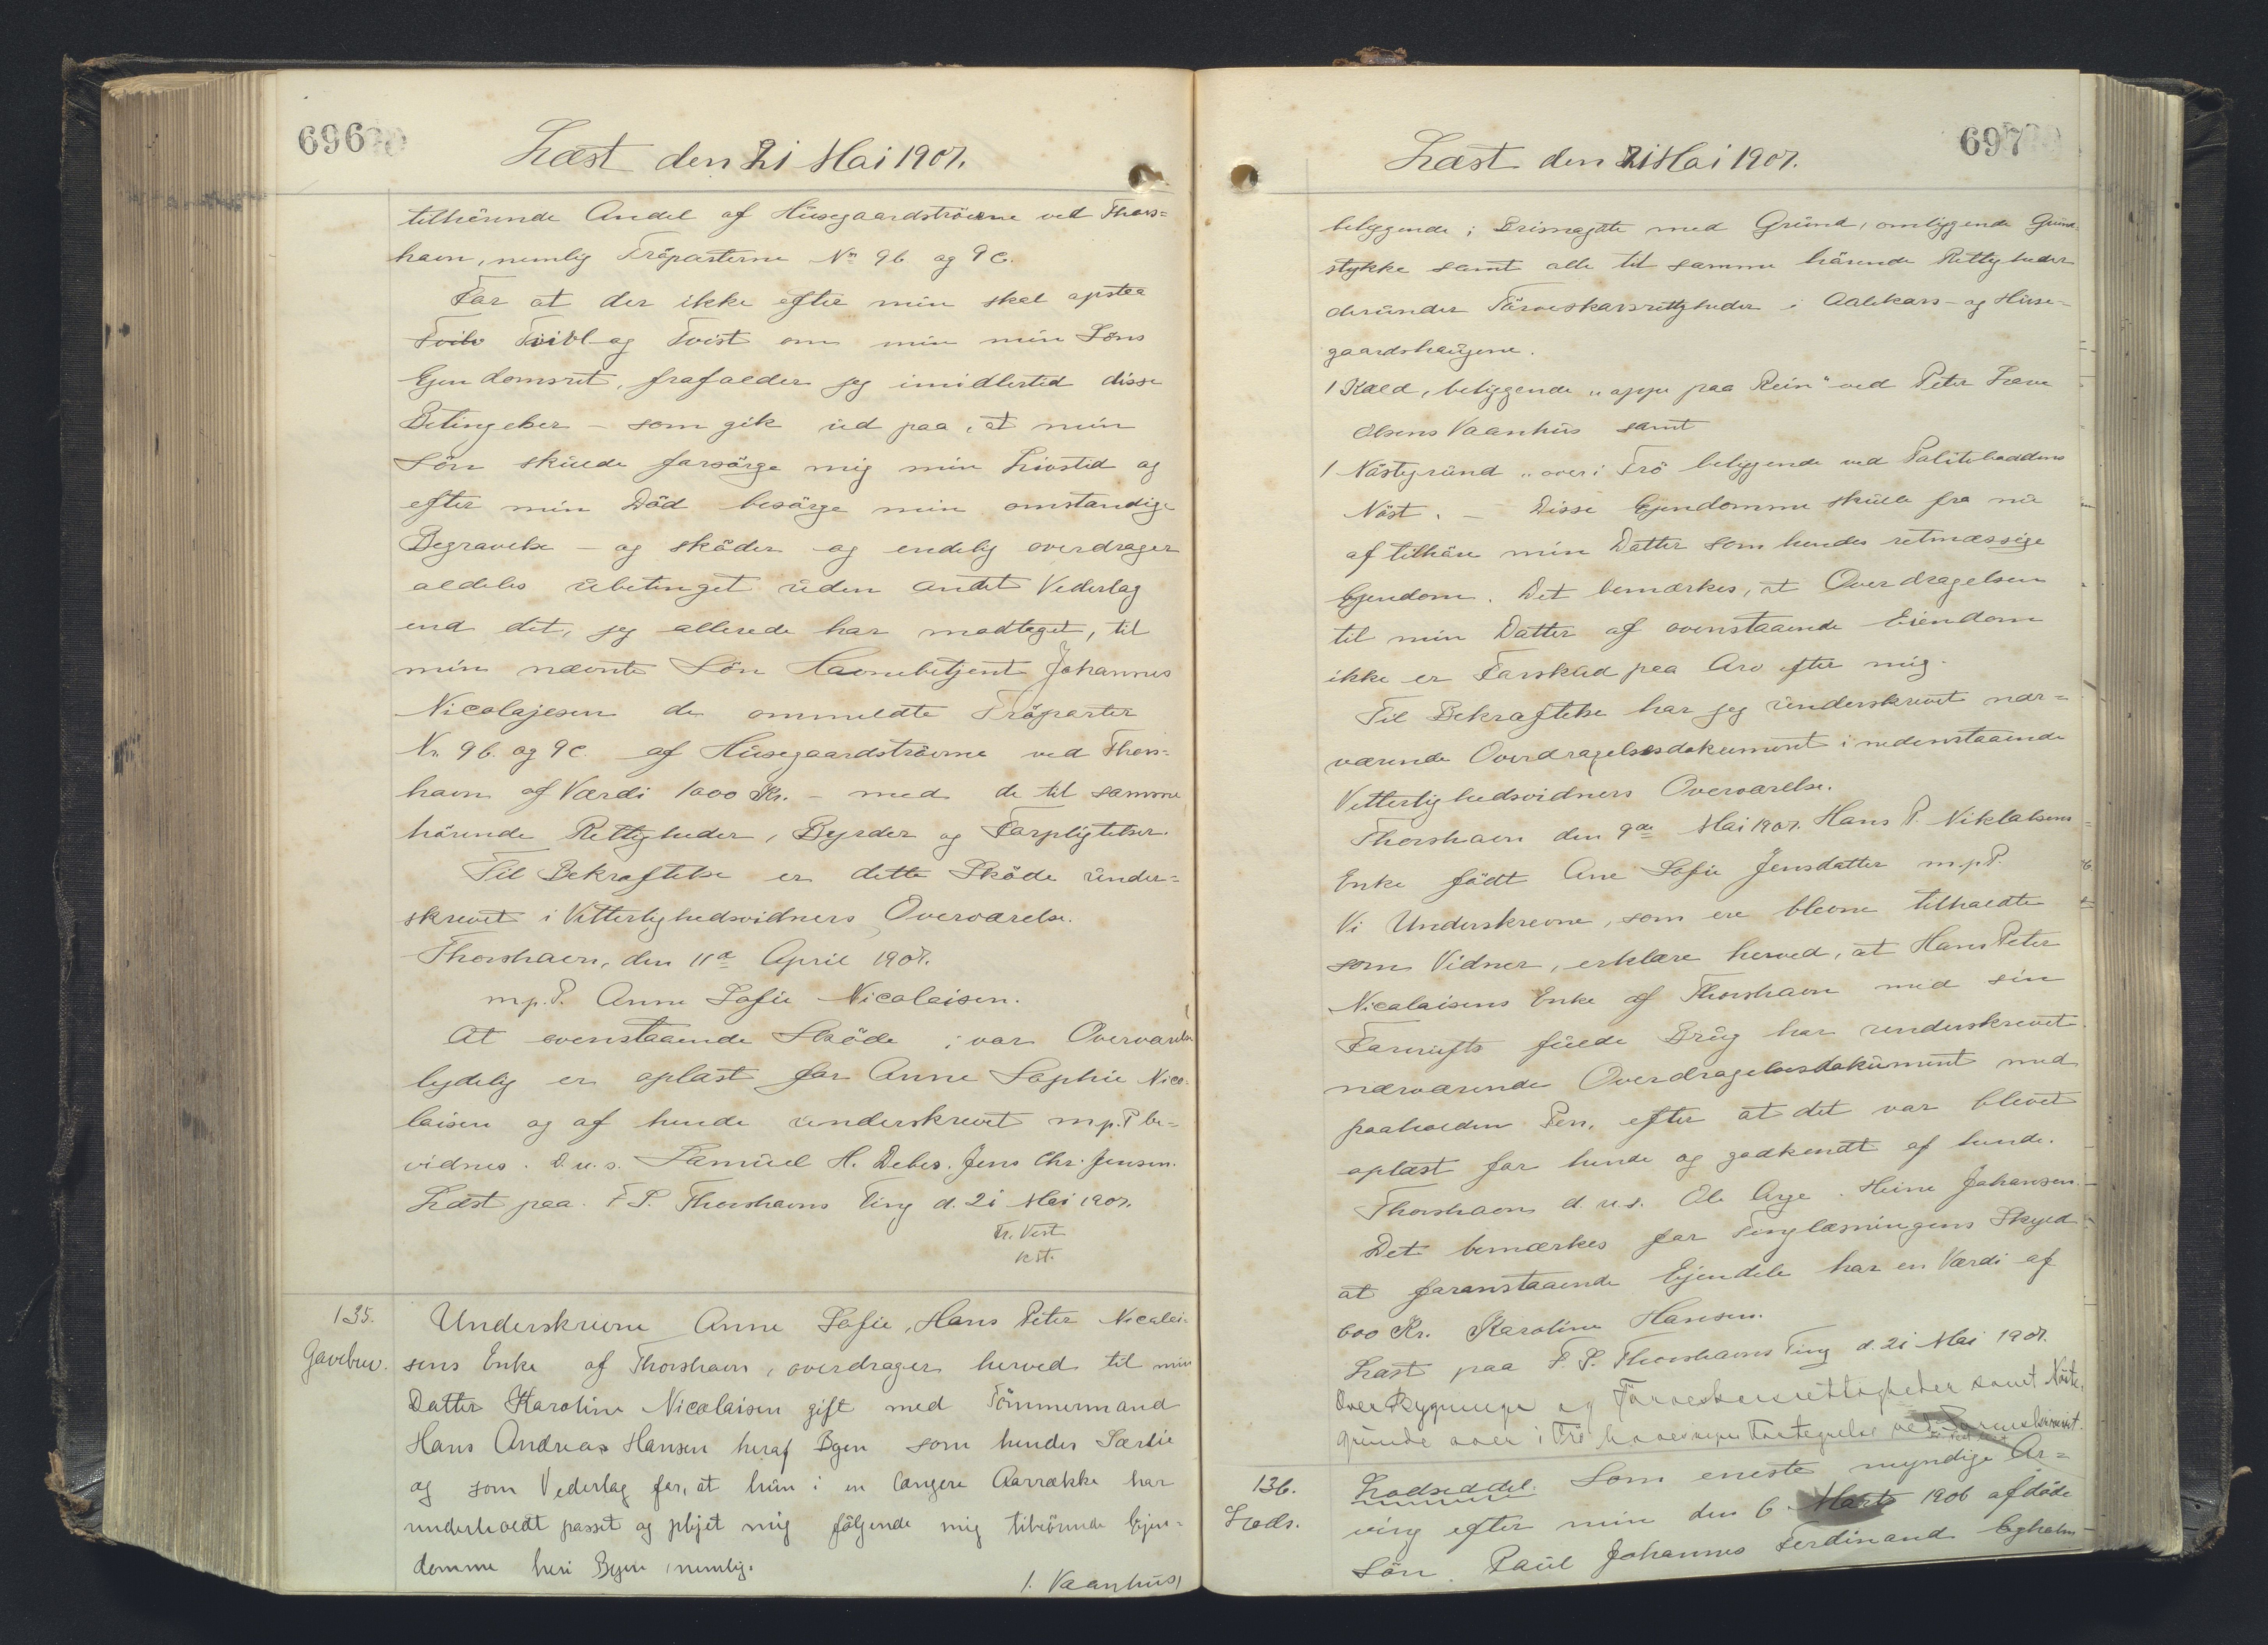 696
Læst den 21 Mai 1907.
tilhörende Andel af Húsegaardströerne ved Thors=
havn, nemlig Tröparterne No 9b og 9c.
For at der ikke efter min skal opstaa
Tvilv Tvivl og Tvist om min min Söns
Ejendomsret, frafalder jeg imidlertid disse
Betingelser – som gik úd paa, at min
Sön skúlde forsörge mig min Livstid og
efter min Död besörge min anstændige
Begravelse – og sköder og endelig overdrager
aldeles úbetinget úden andet Vederlag
end det, jeg allerede har modtaget, til
min nævnte Sön Havnebetjent Johannes
Nicolajesen de ommeldte Tröparter
Nr. 9b. og 9c. af Húsegaardströerne ved Thors=
havn af Værdi 1000 Kr. – med de til samme
hörende Rettigheder, Byrder og Forpligtelser.
Til Bekræftelse er dette Sköde únder=
skrevet i Vitterlighedsvidners Overværelse.
Thorshavn, den 11te April 1907.
m.p.P. Anne Sofie Nicolaisen.
At ovenstaaende Sköde i vor Overværelse
lydelig er oplæst for Anne Sophie Nico-
laisen og af hende únderskrevet m.p.P be=
vidnes. D.u.s. Samúel H. Debes. Jens Chr. Jensen.
Læst paa F. S. Thorshavns Ting d. 21 Mai 1907.
Fr. Vest
kst.
135.
Gavebrev.
Underskrevne Anne Sofie, Hans Peter Nicolai-
sens Enke af Thorshavn, overdrager herved til min
Datter Karoline Nicolaisen gift med Tömmermand
Hans Andreas Hansen heraf Byen som hendes Særlie
og som Vederlag for, at hún i en længere Aarrække har
underholdt passet og plejet mig fölgende mig tilhörende Ejen-
domme heri Byen nemlig.
1. Vaanhús,
697
Læst den 21 Mai 1907.
beliggende i Brismagöte med Grúnd, omliggende Grúnd-
stykke samt alle til samme hörende Rettigheder
derúnder Törveskarsrettigheder i Aalekærs- og Húse-
gaardshaúgene.
1 Kald, beliggende "oppe paa Rein" ved Peter Lave
Olsens Vaanhús samt
1 Nöstegrúnd "over i Trö beliggende ved Politiboddens
Nöst. – Disse Ejendomme skúlle fra nú
af tilhöre min Datter som hendes retmæssige
Ejendom. Det bemærkes, at Overdragelsen
til min Datter af ovenstaaende Eiendom
ikke er Forskúd paa Arv efter mig.
Til Bekræftelse har jeg únderskrevet nær=
værende Overdragelsesdokúment i nedenstaaende
Vitterlighedsvidners Overværelse.
Thorshavn den 9de Mai 1907. Hans P. Niklalsens
Enke födt Ane Sofie Jensdatter m.p.P.
Vi Underskrevne, som ere blevne tilkaldte
som Vidner, erklære herved, at Hans Peter
Nicolaisens Enke af Thorshavn med sin
Fornúfts fúlde Brúg har únderskrevet
nærværende Overdragelsesdokúment med
paaholden Pen, efter at det var blevet
oplæst for hende og godkendt af hende.
Thorshavn d. u. s. Ole Arge. Heine Johansen.
Det bemærkes for Tinglæsningens Skyld
at foranstaaende Ejendele har en Værdi af
600 Kr. Karoline Hansen.
Læst paa F. S. Thorshavns Ting d. 21 Mai 1907.
Over Bygninge og Törveskærsrettigheder samt Nöste-
grúnde over i Trö haves ingen Fortegnelse ved
136.
Lods.
Lodseddel. Som eneste myndige Ar=
ving efter min den 6 Marts 1906 afdöde
Sön Paúl Johannes Ferdinand Egholm